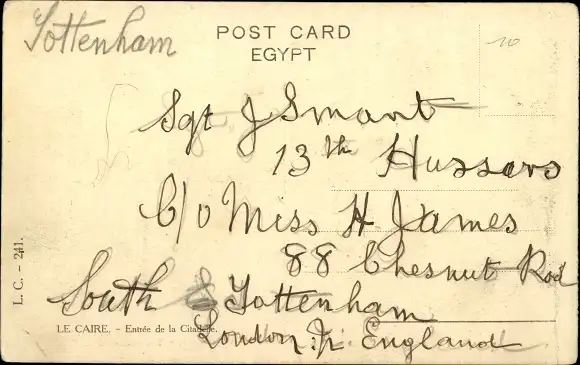 Tottenham
POST CARD
EGYPT
10
Sgt J Smart
13th Hussars
C/o Miss H James
88 Chesnut Rod
South Tottenham
London. N. England
LE CAIRE. - Entrée de la Citadelle.
L. C. - 241.